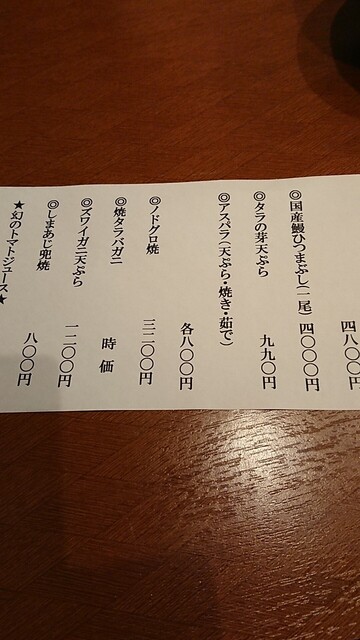 四八〇〇円
◎国産鰻ひつまぶし（一尾）四〇〇〇円
◎タラの芽天ぷら 九九〇円
◎アスパラ（天ぷら・焼き・茹で） 各八〇〇円
◎ノドグロ焼 三二〇〇円
◎焼タラバガニ 時価
◎ズワイガニ天ぷら 一二〇〇円
◎しまあじ兜焼 八〇〇円
★幻のトマトジュース★